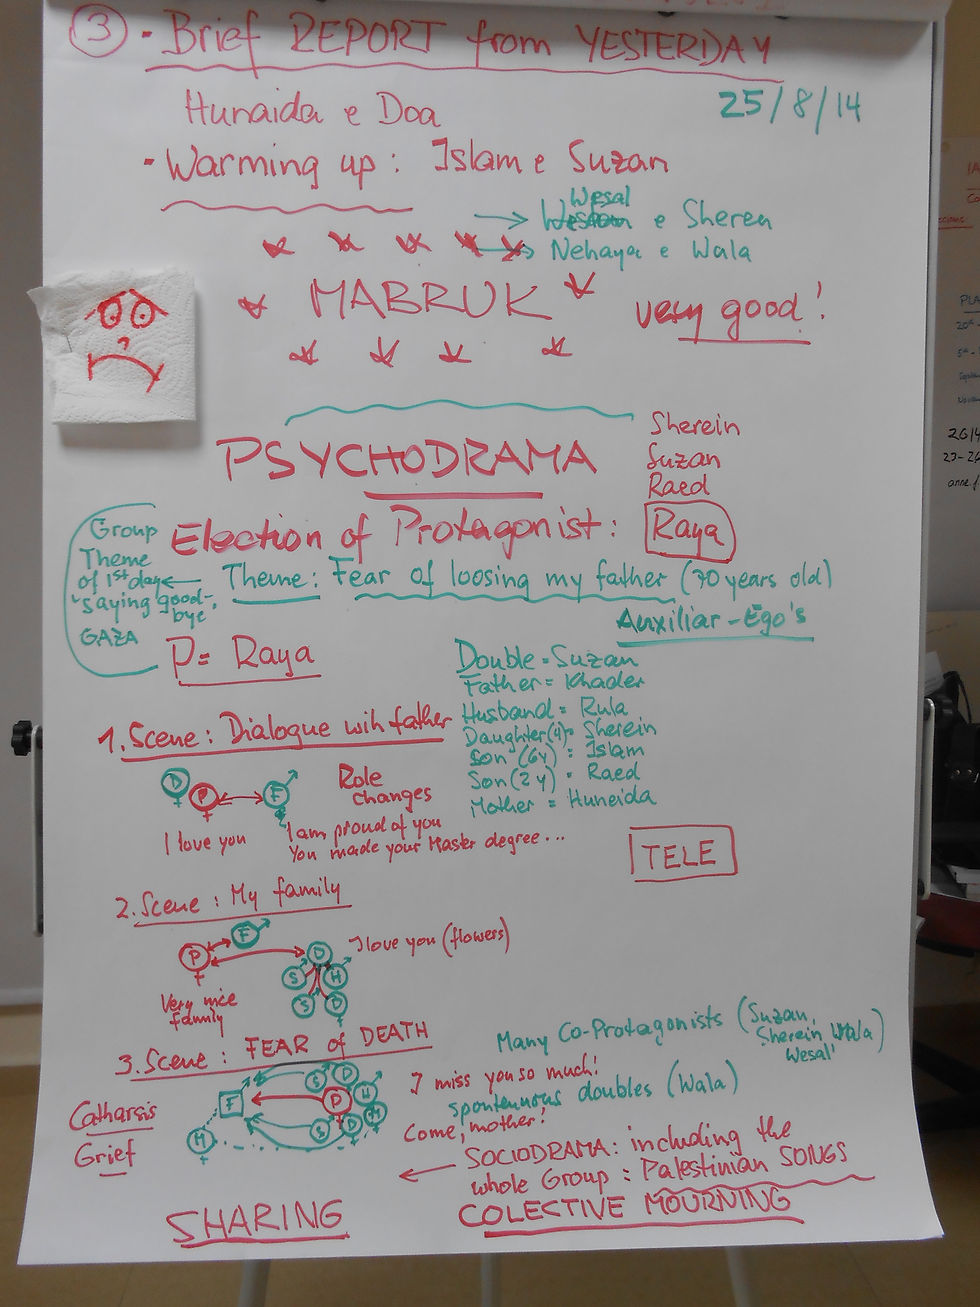 ③ • Brief REPORT from YESTERDAY
Hunaida e Doa
25/8/14
• Warming up: Islam e Suzan
Wesal
→ e Sheren
→ Nehaya e Wala
MABRUK
very good!
PSYCHODRAMA
Sherein
Suzan
Raed
Election of Protagonist: Raya
Group
Theme
of 1st day ←
"saying good-
bye"
GAZA
Theme: Fear of loosing my father (70 years old)
Auxiliar-Ego's
P= Raya
Double = Suzan
Father = Khader
Husband = Rula
Daughter(4) = Sherein
Son (6y) = Islam
Son (2y) = Raed
Mother = Huneida
1. Scene: Dialogue wih father
D P F
Role
changes
I love you
I am proud of you
You made your Master degree...
TELE
2. Scene: My family
P F
D
S H
S D
I love you (flowers)
Very nice
family
3. Scene: FEAR of DEATH
Many Co-Protagonists (Suzan,
Sherein, Wala)
Wesal
F
S D
P H
S D M
M
I miss you so much!
spontennous doubles (Wala)
Come, mother!
Catharsis
Grief
← SOCIODRAMA: including the
whole Group: Palestinian SONGS
COLECTIVE MOURNING
SHARING
PLA
2014
23-26
anne.f